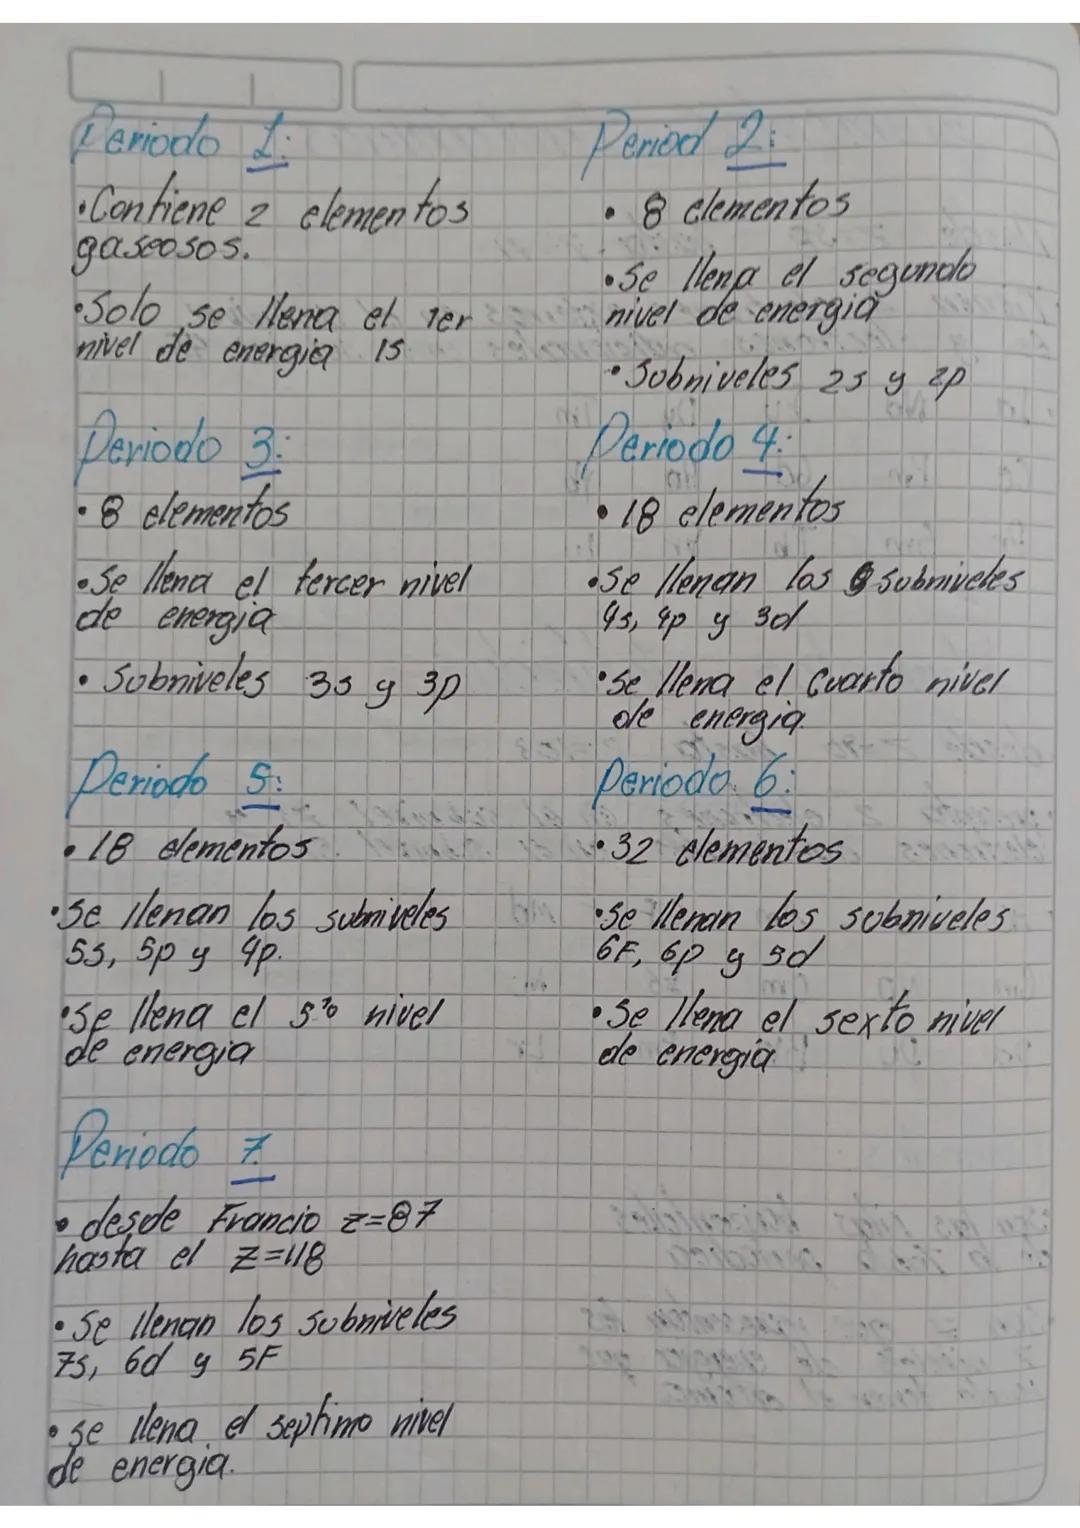 Periodo 1:
• Contiene 2 elementos
gaseosos.
• Solo se llena el 1er
nivel de energia 1s
Period 2:
• 8 elementos
• Se llena el segundo
nivel de energia
• Subniveles 2s y 2p
Periodo 3:
• 8 elementos
• Se llena el tercer nivel
de energia
• Subniveles 3s y 3p
Periodo 4:
• 18 elementos
• Se llenan los subniveles
4s, 4p y 3d
• Se llena el Cuarto nivel
de energia.
Periodo 5:
• 18 elementos
• Se llenan los subniveles
5s, 5p y 4p.
• Se llena el 5to nivel
de energia
Periodo 6:
• 32 elementos
• Se llenan los subniveles
6F, 6p y 5d
• Se llena el sexto nivel
de energia
Periodo 7.
• desde Francio z=87
hasta el z=118
• Se llenan los subniveles
7s, 6d y 5F
• se llena el septimo nivel
de energia.